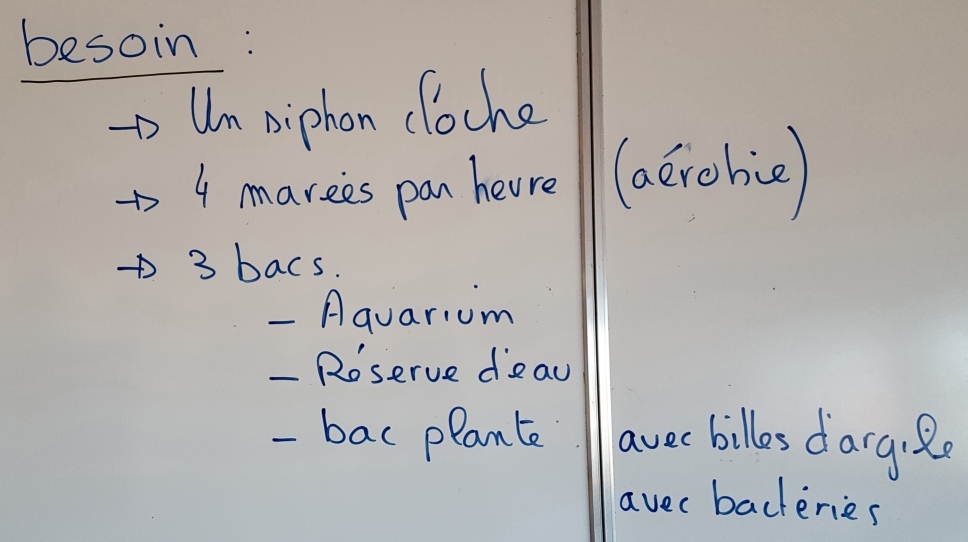 besoin :
→ Un siphon cloche
→ 4 marées par heure (aérobie)
→ 3 bacs.
- Aquarium
- Réserve d'eau
- bac plante avec billes d'argile
avec bactéries